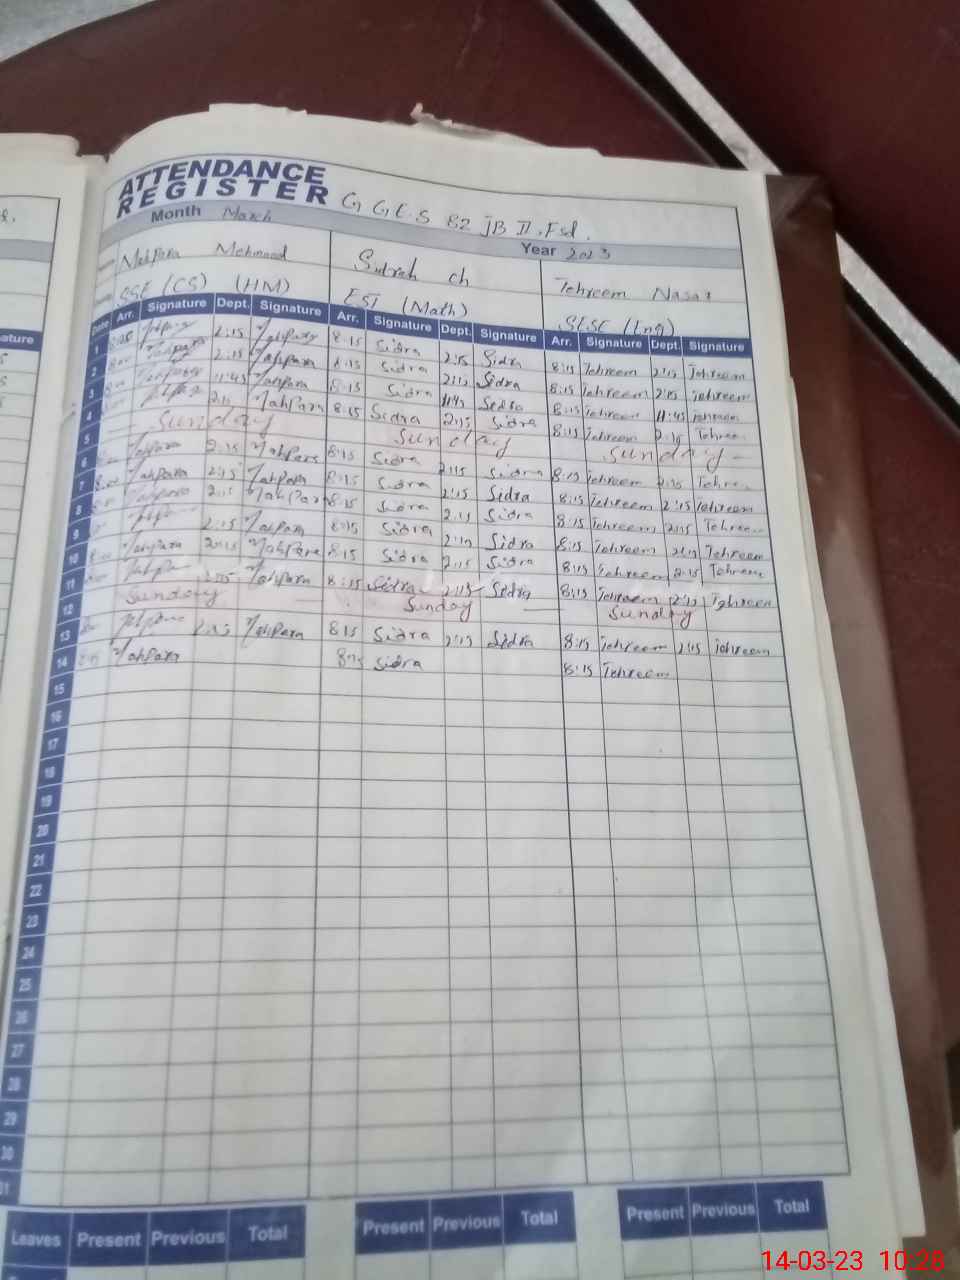 ATTENDANCE
REGISTER G G E.S 82 JB II. Fsd.
Month March Year 2023
Mahpara Mehmood Sidrah ch Tehreem Nasar
SSE (CS) (HM) EST (Math) SESE (Eng)
Date Arr. Signature Dept. Signature Arr. Signature Dept. Signature Arr. Signature Dept. Signature
1 2:15 Mahpara 8:15 Sidra 2:15 Sidra 8:15 Tehreem 2:15 Tehreem
2 Mahpara 2:15 Mahpara 8:15 Sidra 2:15 Sidra 8:15 Tehreem 2:15 Tehreem
3 11:45 Mahpara 8:15 Sidra 11:45 Sidra 8:15 Tehreem 11:45 Tehreem
4 2:15 Mahpara 8:15 Sidra 2:15 Sidra 8:15 Tehreem 2:15 Tehreem
5 Sunday Sunday Sunday
6 Mahpara 2:15 Mahpara 8:15 Sidra 2:15 Sidra 8:15 Tehreem 2:15
7 8:00 Mahpara 2:15 Mahpara 8:15 Sidra 2:15 Sidra 8:15 Tehreem 2:15 Tehreem
8 Mahpara 2:15 Mahpara 8:15 Sidra 2:15 Sidra 8:15 Tehreem 2:15 Tehreem
9 2:15 Mahpara 8:15 Sidra 2:15 Sidra 8:15 Tehreem 2:15 Tehreem
10 8:00 Mahpara 2:15 Mahpara 8:15 Sidra 2:15 Sidra 8:15 Tehreem 2:15 Tehreem
11 Mahpara 8:15 Sidra 2:15 Sidra 8:15 Tehreem 2:15 Tehreem
12 Sunday Sunday Sunday
13 2:15 Mahpara 8:15 Sidra 2:15 Sidra 8:15 Tehreem 2:15 Tehreem
14 Mahpara 8:15 Sidra 8:15 Tehreem
15
16
17
18
19
20
21
22
23
24
25
26
27
28
29
30
31
Leaves Present Previous Total Present Previous Total Present Previous Total
14-03-23 10:28